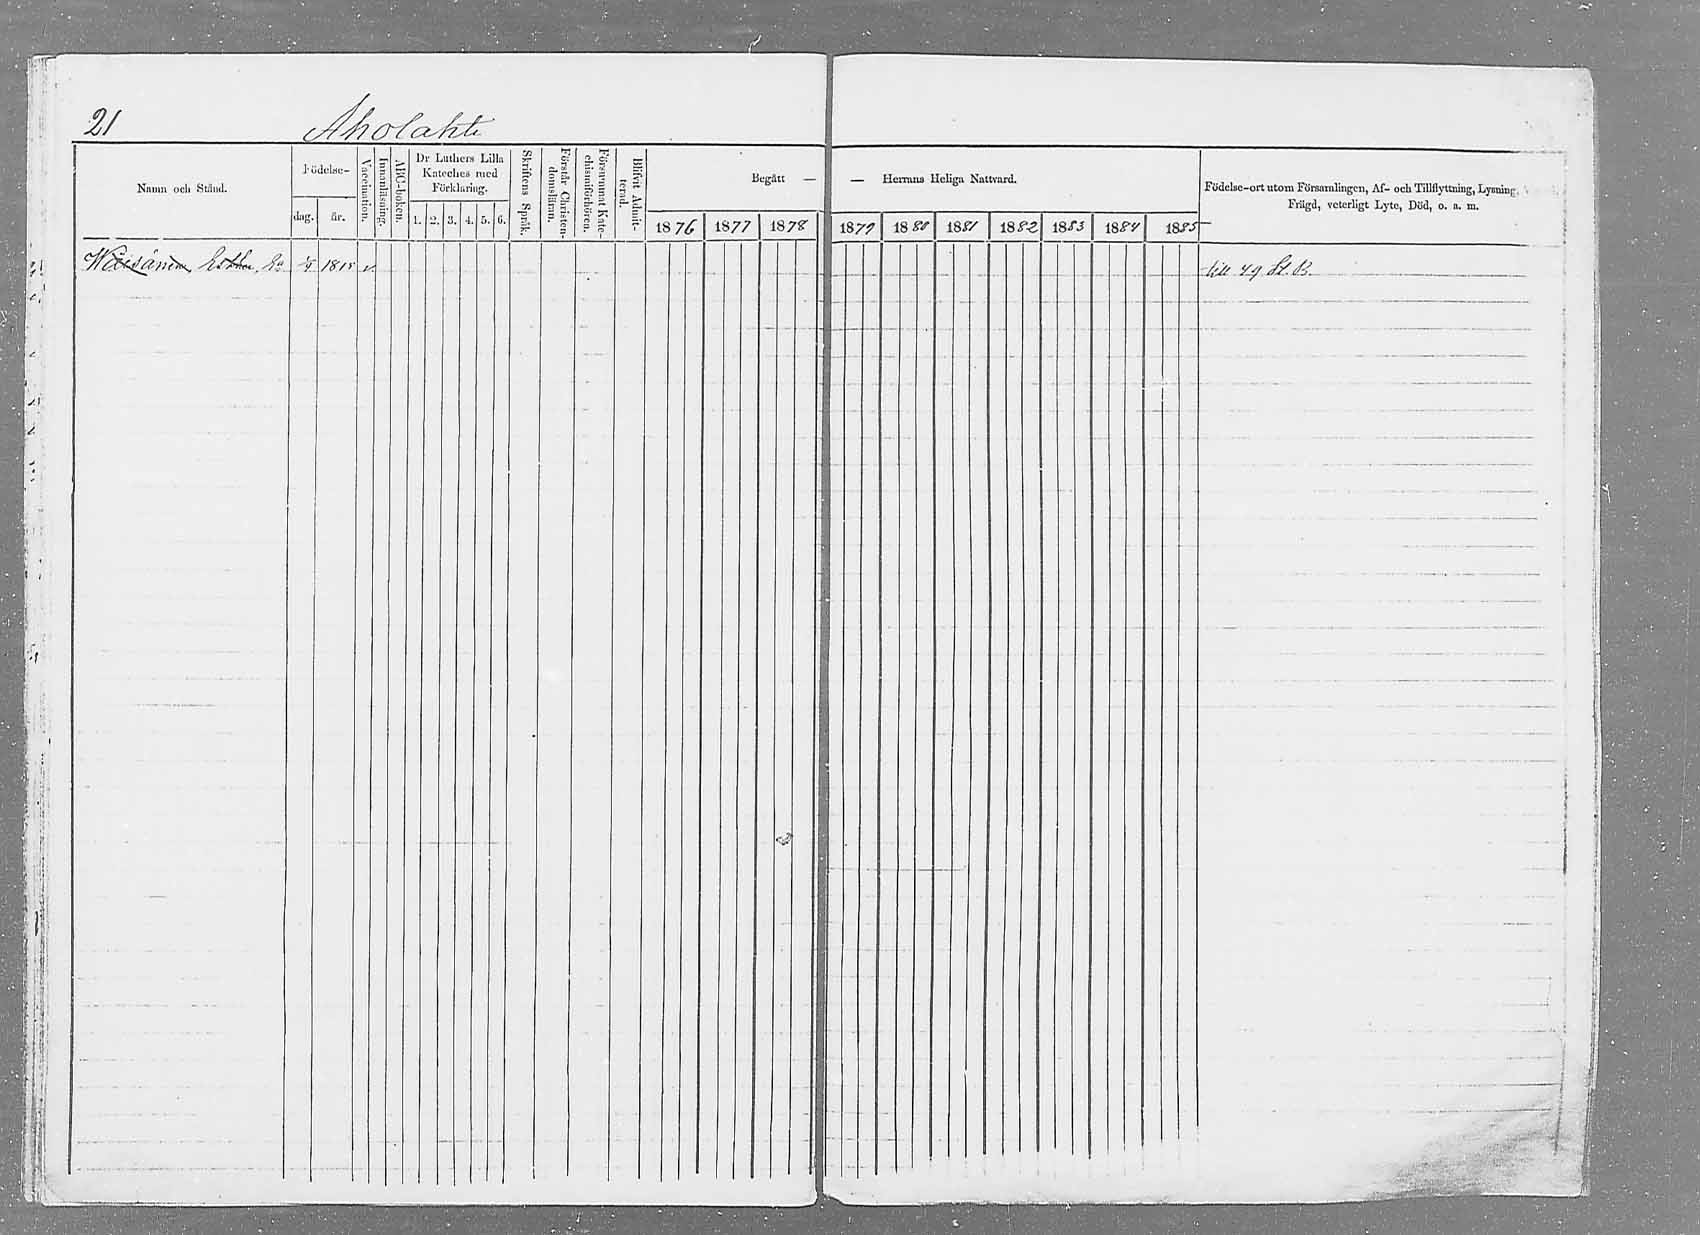 21 Aholahti
Namn och Stånd.
Födelse-
dag. år.
Vaccination.
Innanläsning.
ABC-boken.
Dr Luthers Lilla
Kateches med
Förklaring.
1. 2. 3. 4. 5. 6.
Skriftens Språk.
Förstår Christen-
domsläran.
Försummat Kate-
chismiförhören.
Blifvit Admit-
terad.
Begått — — Herrans Heliga Nattvard.
1876 1877 1878 1879 1880 1881 1882 1883 1884 1885
Födelse-ort utom Församlingen, Af- och Tillflyttning, Lysning,
Frägd, veterligt Lyte, Död, o. a. m.
Wäisänen, Esther, v. till 49 St. B.